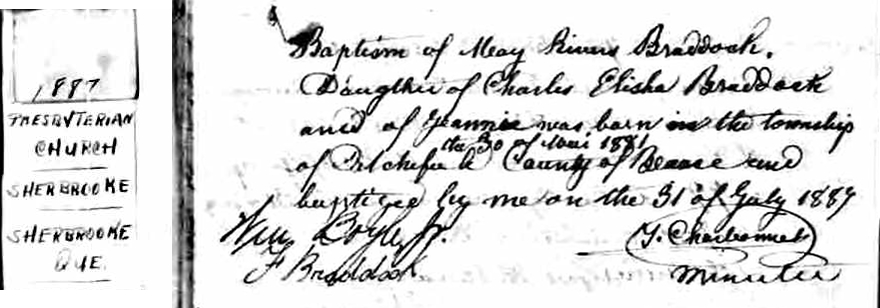 1887
PRESBYTERIAN
CHURCH
SHERBROOKE
SHERBROOKE
QUE.
Baptism of May Rivers Braddock.
Daughter of Charles Elisha Braddock
and of Jeannie was born in the township
the 30 of Mai 1881
of County of Beauce and
baptized by me on the 31 of July 1887
Wm Boyle Jr.
J. Charbonnel
F Braddock
Minister